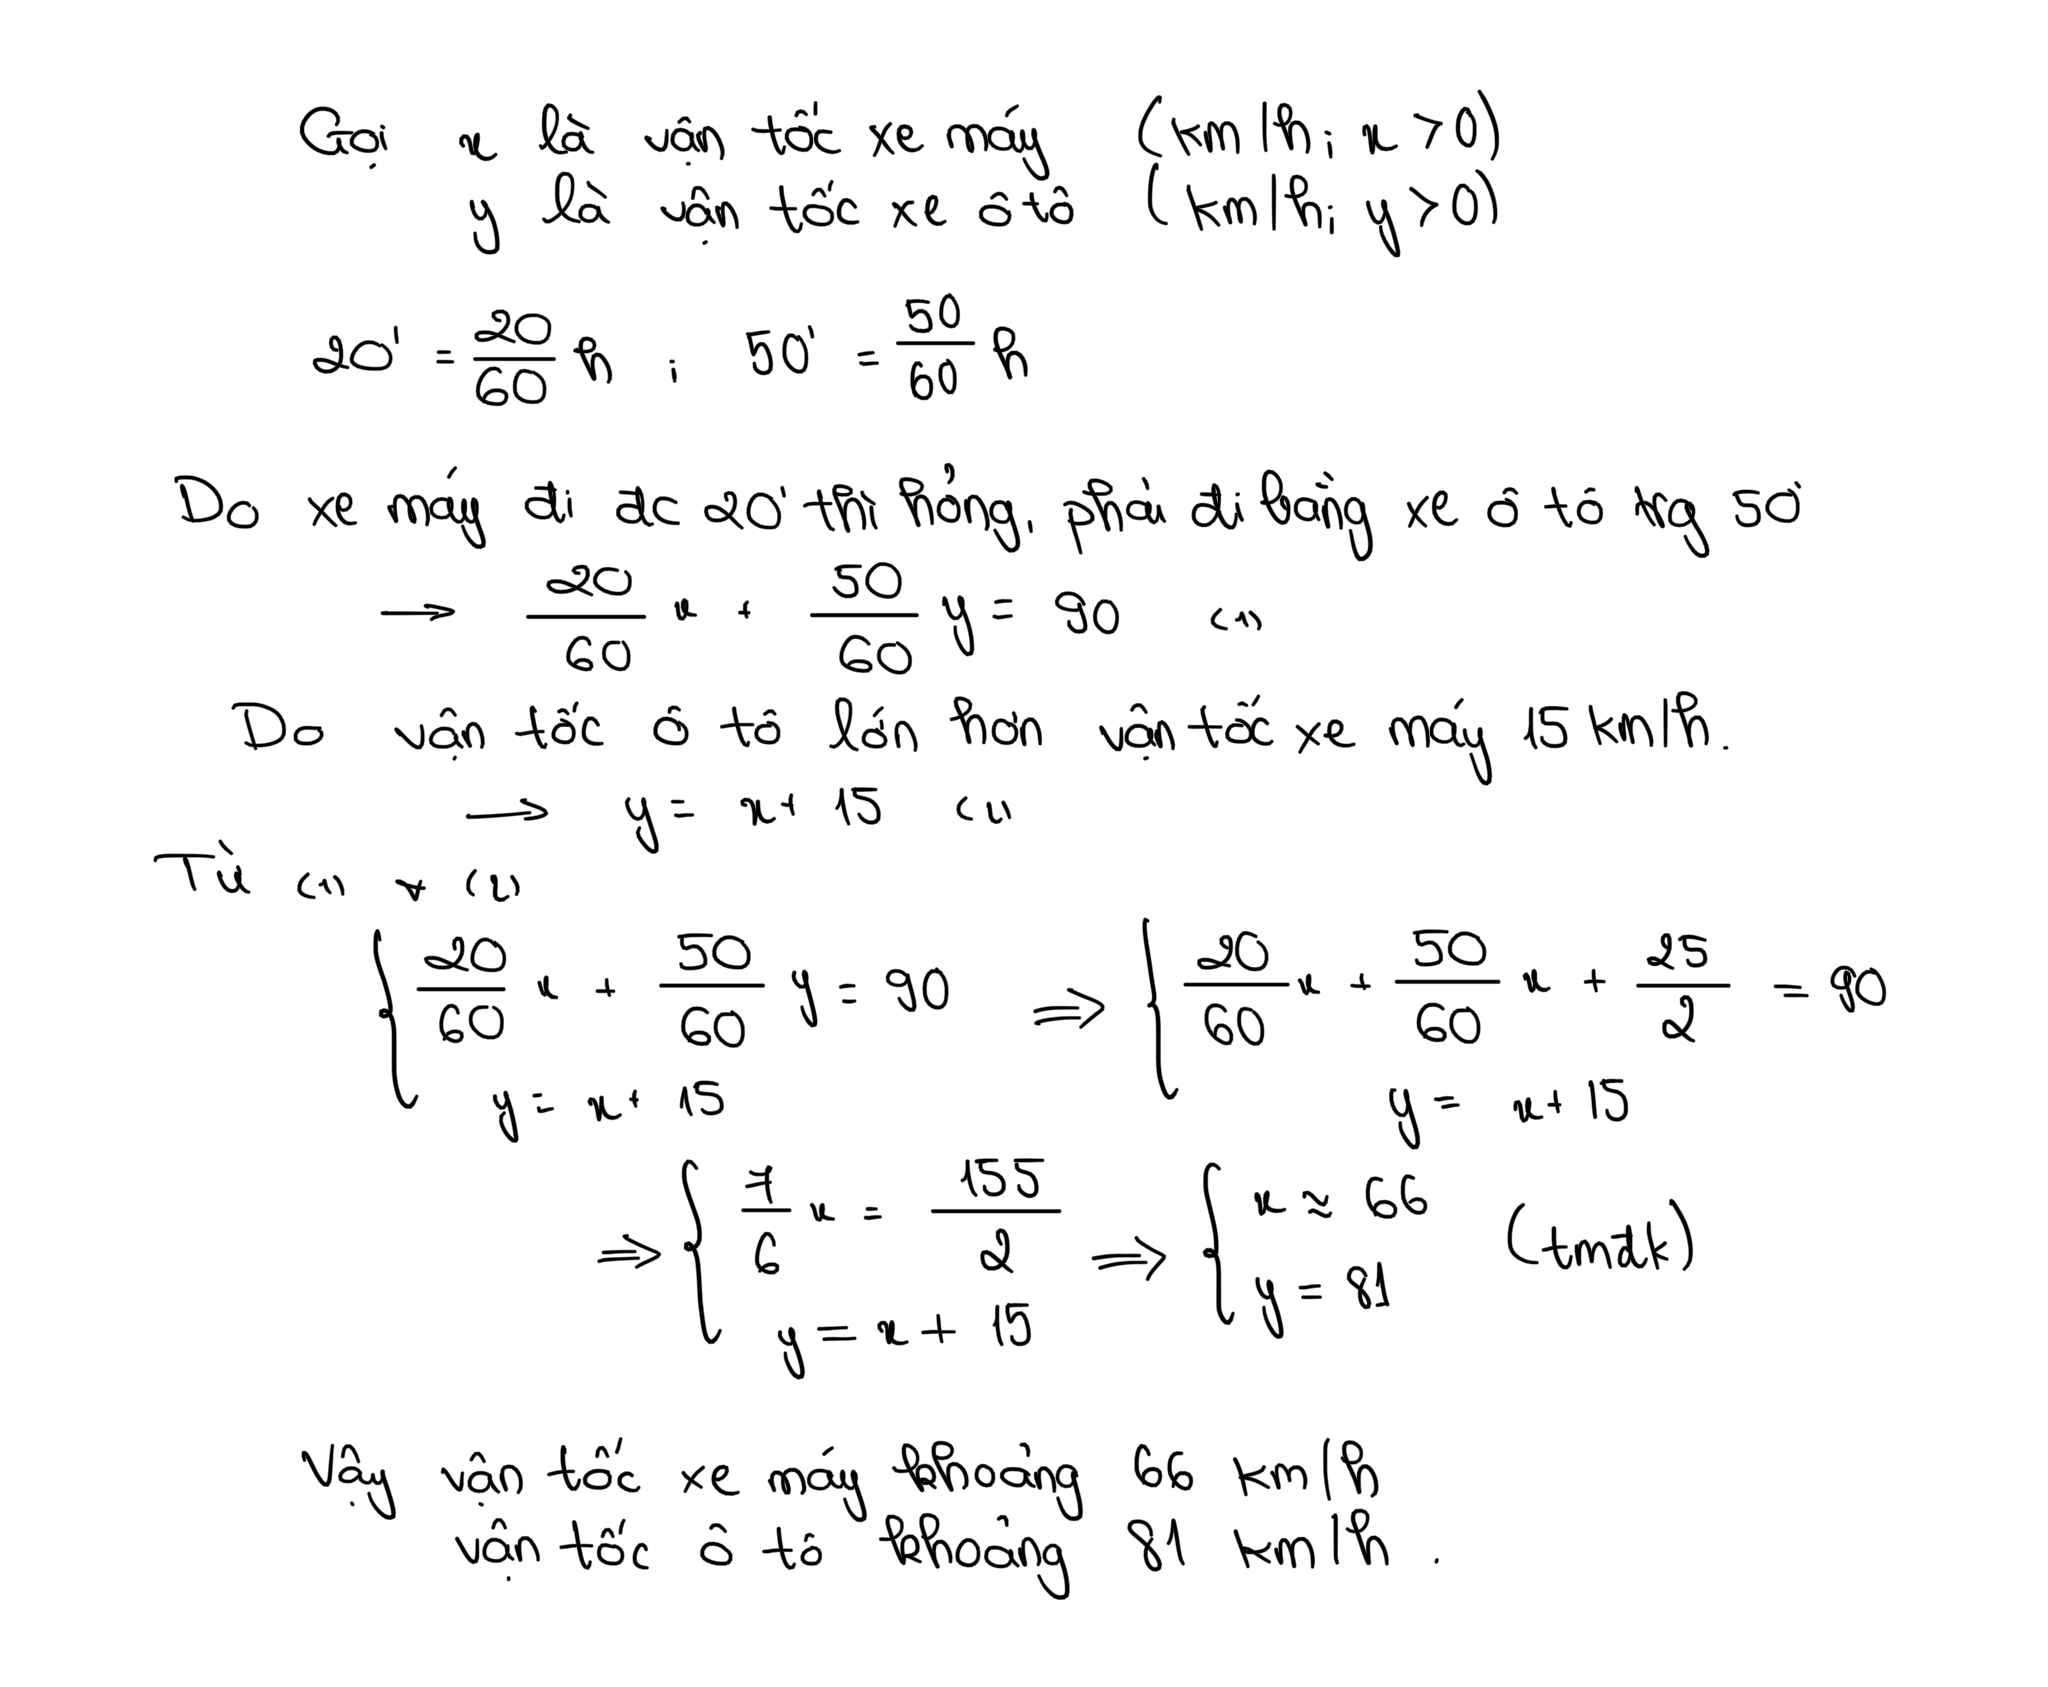 Gọi x là vận tốc xe máy (km/h; x > 0)
y là vận tốc xe ô tô (km/h; y > 0)
20' = 20/60 h ; 50' = 50/60 h
Do xe máy đi đc 20' thì hỏng, phải đi bằng xe ô tô trg 50'
→ 20/60 x + 50/60 y = 90 (1)
Do vận tốc ô tô lớn hơn vận tốc xe máy 15 km/h.
→ y = x + 15 (2)
Từ (1) + (2)
{ 20/60 x + 50/60 y = 90 ⇒ { 20/60 x + 50/60 x + 25/2 = 90
y = x + 15 y = x + 15
⇒ { 7/6 x = 155/2 ⇒ { x ≈ 66 (tmđk)
y = x + 15 y = 81
Vậy vận tốc xe máy khoảng 66 km/h
vận tốc ô tô khoảng 81 km/h.